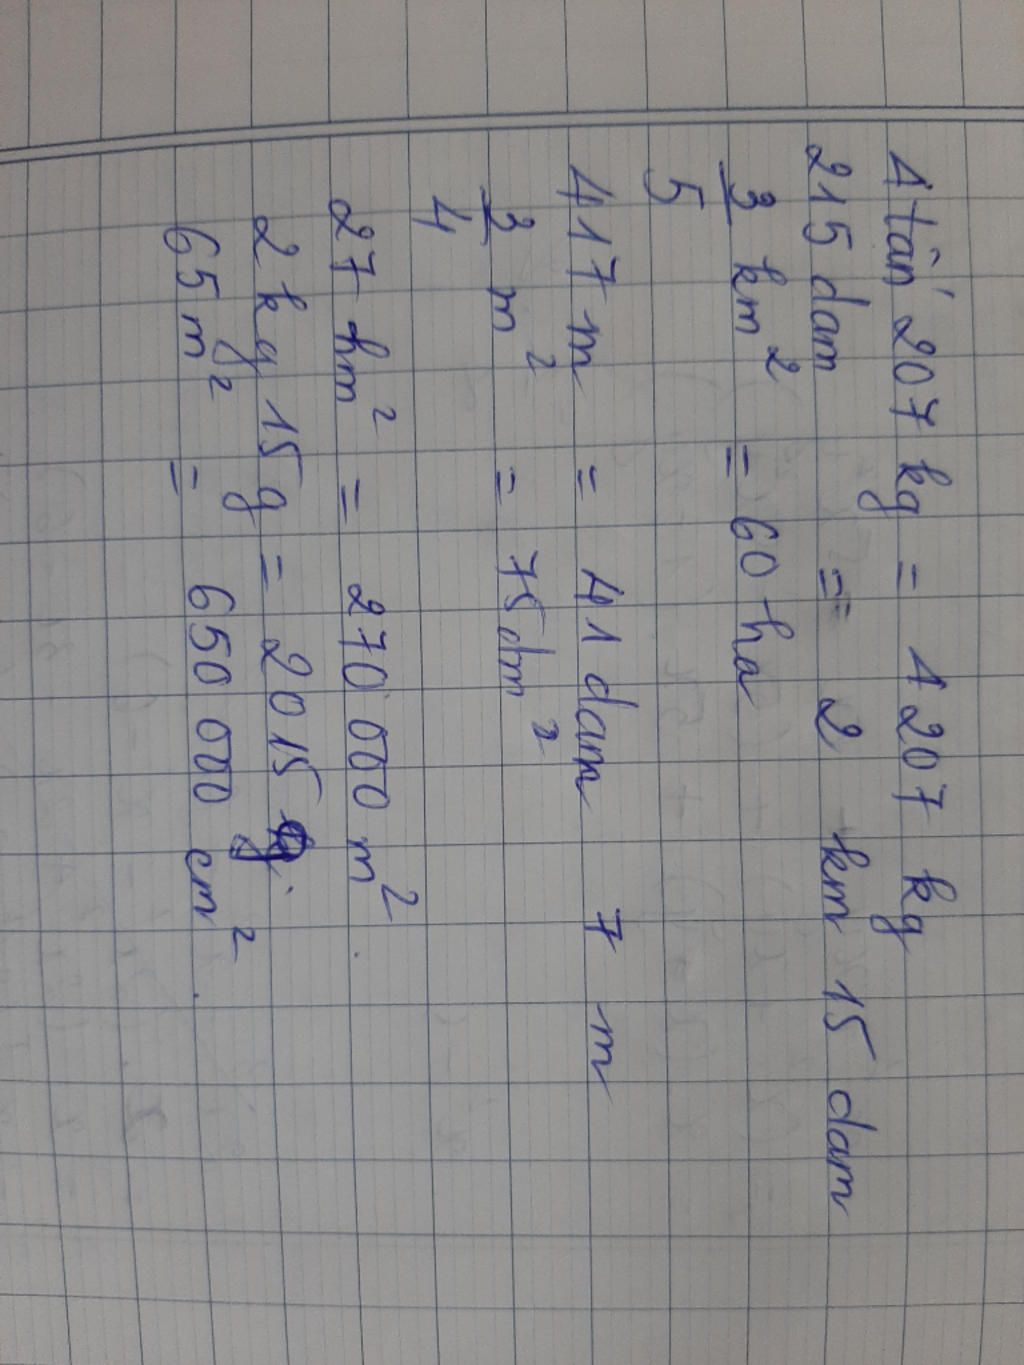 1 tấn 207 kg = 1 207 kg
215 dam = 2 km 15 dam
3/5 km² = 60 ha
417 m = 41 dam 7 m
3/4 m² = 75 dm²
27 hm² = 270 000 m².
2 kg 15 g = 2015 g.
65 m² = 650 000 cm².